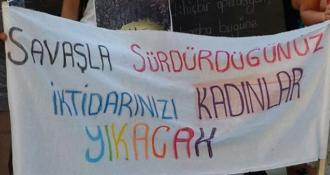 SAVAŞLA SÜRDÜRDÜĞÜNÜZ
İKTİDARINIZI KADINLAR
YIKACAK